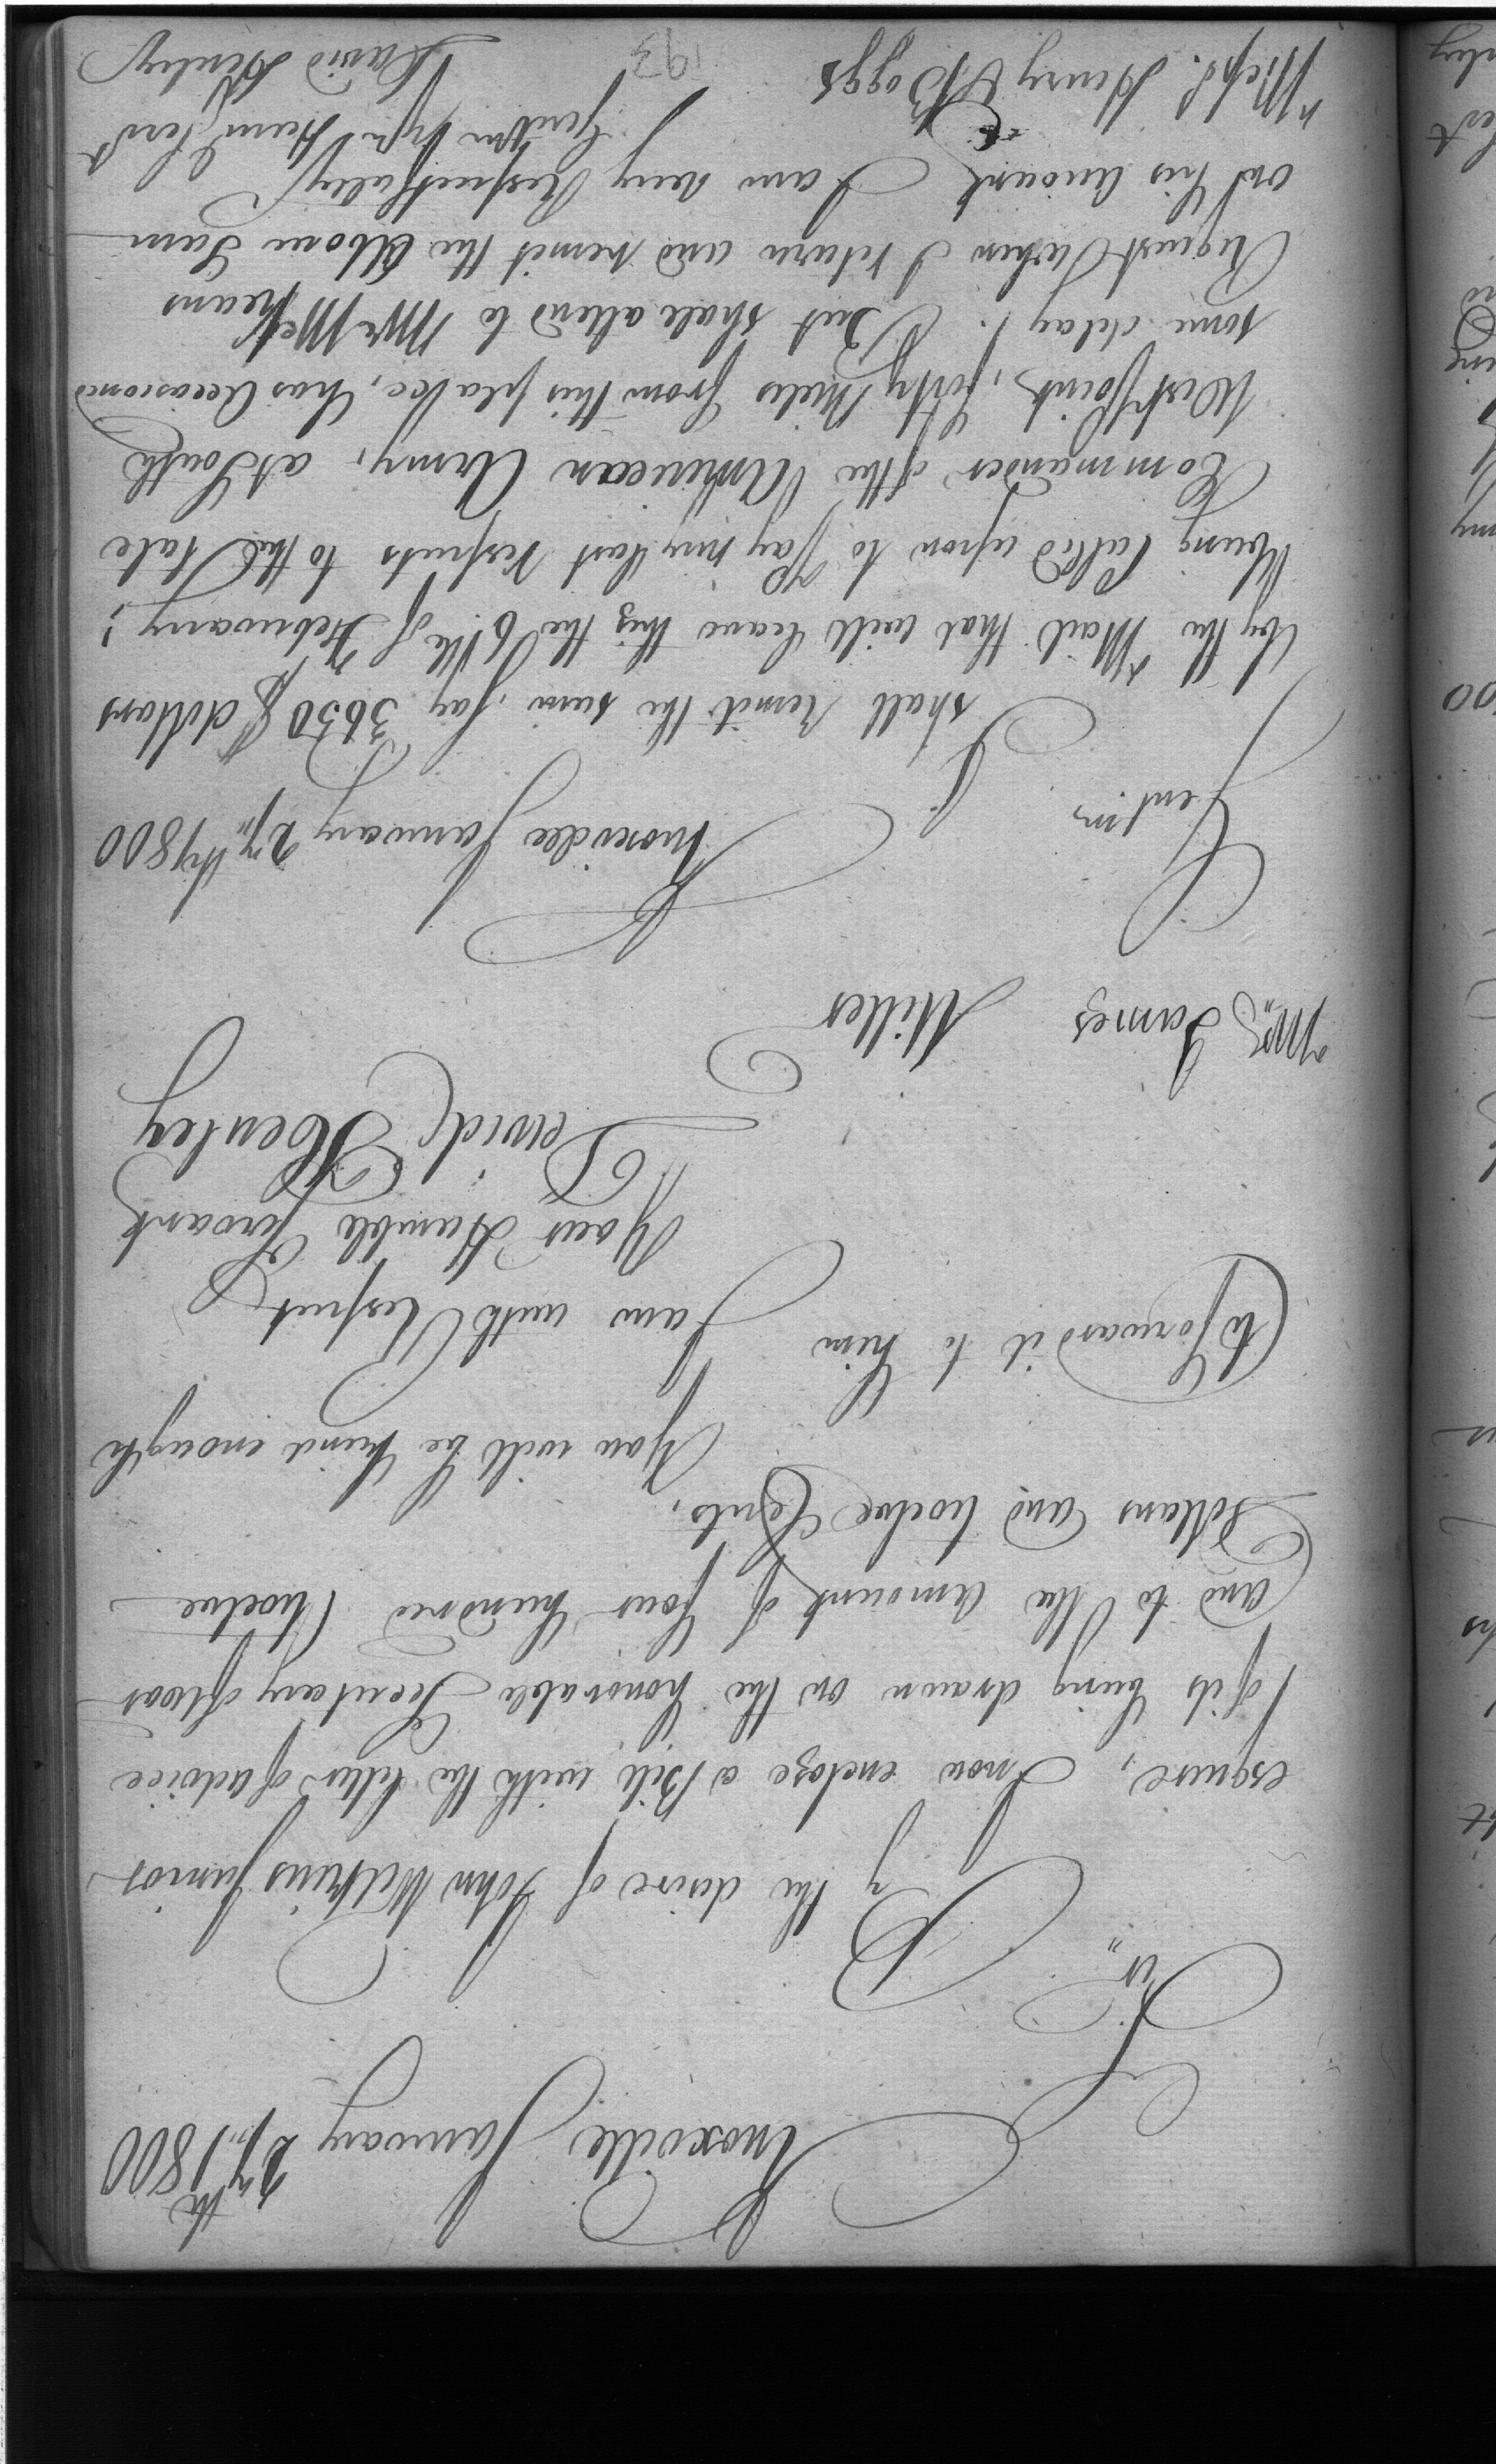 Knoxville January 27th 1800
Sir
By the desire of John Watkins Junior
esquire, I now enclose a Bill with the letter of advice
of its being drawn on the honorable Secretary of War
and to the amount of four hundred twelve
Dollars and twelve Cents.
You will be kind enough
to forward it to him
I am with Respect
Your Humble Servant
David Henley
Mr James Miller
Knoxville January 27th 1800
Gentn
I shall remit the sum, say 3650 dollars
by the Mail that will leave this the 6th of February;
being Called upon to Pay my last respects to the late
Commander of the American Army, at South
West point, forty Miles from this place, has occasioned
some delay. But shall attend to Mr
request when I return and remit the Above Sum
on his Account I am very Respectfully
Gentn Yr Hum Servt
Messrs. Henry & Boggs David Henley
193